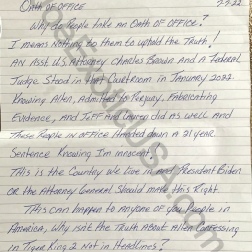 OATH OF OFFICE 2-5-22
Why do People take an OATH OF OFFICE?
I means Nothing to them to uphold the Truth!
AN Asst. U.S Attorney Charles Brown And A Federal
Judge Stood in that CourtRoom in January 2022
Knowing Allen, Admitted to Perjury, Fabricating
Evidence, And Jeff did as well And
These People in office Handed down A 21 year
Sentence Knowing I'm innocent,
This is the Country we live in and President Biden
OR the Attorney General Should make this Right
This can happen to Anyone of you People in
America, Why isn't the Truth about Allen Confessing
in Tiger King 2 Not in Headlines?